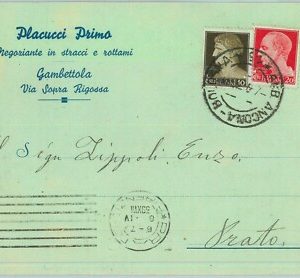 Placucci Primo
Negoziante in stracci e rottami
Gambettola
Via Sopra Rigossa
ANCONA - BOLOGNA
Sig. Zippoli Enzo.
Prato.